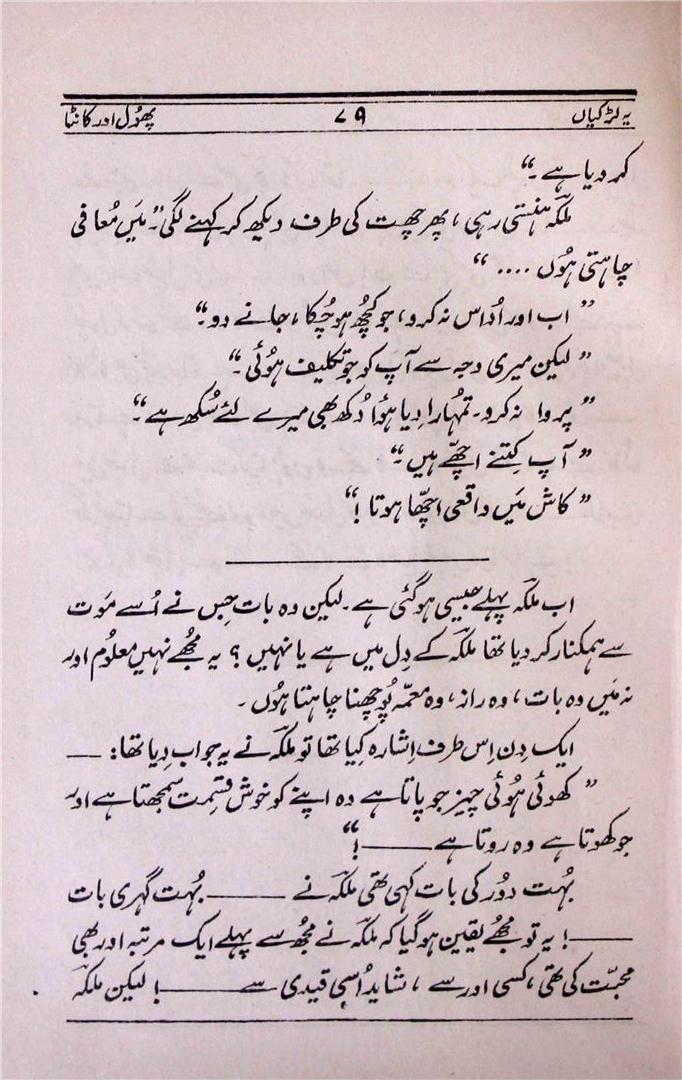 یہ لڑکیاں ۷۹ پھُول اور کانٹا
کر دیا ہے۔“
ملکہ ہنستی رہی، پھر چھت کی طرف دیکھ کر کہنے لگی ”۔ مَیں مُعافی
چاہتی ہُوں ....“
”اب اور اُداس نہ کرو، جو کچُھ ہو چُکا، جانے دو۔“
”لیکن میری وجہ سے آپ کو جو تکلیف ہُوئی۔“
”پروا نہ کرو۔ تمہارا دیا ہؤا دُکھ بھی میرے لئے سُکھ ہے“۔
”آپ کِتنے اچھّے ہیں۔“
”کاش مَیں واقعی اچھّا ہوتا!“
اب ملکہ پہلے جیسی ہو گئی ہے۔ لیکن وہ بات جِس نے اُسے مَوت
سے ہمکنار کر دیا تھا ملکہ کے دِل میں ہے یا نہیں؟ یہ مجُھے نہیں معلُوم اور
نہ مَیں وہ بات، وہ راز، وہ معمّہ پُوچھنا چاہتا ہُوں۔
ایک دِن اِس طرف اِشارہ کِیا تھا تو ملکہ نے یہ جواب دِیا تھا: —
”کھوئی ہُوئی چیز جو پاتا ہے وہ اپنے کو خوش قِسمت سمجھتا ہے اور
جو کھوتا ہے وہ روتا ہے ——!“
بُہت دُور کی بات کہی تھی ملکہ نے —— بُہت گہری بات
——! یہ تو مجُھے یقین ہو گیا کہ ملکہ نے مجُھ سے پہلے ایک مرتبہ اور بھی
محبّت کی تھی، کسی اور سے، شاید اُسی قیدی سے ——! لیکن ملکہ